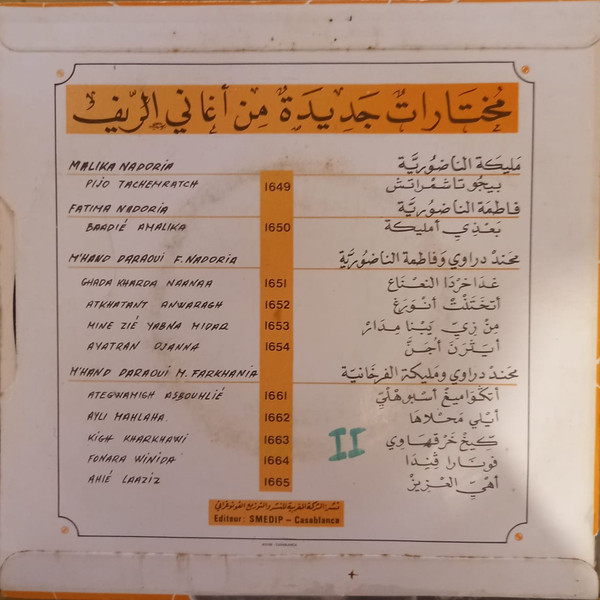 مختارات جديدة من أغاني الريف
MALIKA NADORIA مليكة الناضورية
PIJO TACHEMRATCH 1649 بيجو تاشمراتش
FATIMA NADORIA فاطمة الناضورية
BAADIÉ AMALIKA 1650 بعذي أمليكة
M'HAND DARAOUI F. NADORIA محند دراوي وفاطمة الناضورية
GHADA KHARDA NAANAA 1651 غدا خردا النعناع
ATKHATANT ANWARAGH 1652 أتختنت أنورغ
MINE ZIÉ YABNA MIDAR 1653 من زي يبنا مدار
AYATRAN OJANNA 1654 أيترن أجن
M'HAND DARAOUI M. FARKHANIA محند دراوي ومليكة الفرخانية
ATEGWAMIGH ASBOUHLIÉ 1661 أتكواميغ أسبوهلي
AYLI MAHLAHA 1662 أيلي محلاها
KIGH KHARKHAWI 1663
FONARA WINIDA 1664 فونارا فيندا
AHIÉ LAAZIZ 1665 أهي العزيز
II
نشر: الشركة المغربية للنشر والتوزيع الفونوغرافي
Editeur : SMEDIP – Casablanca